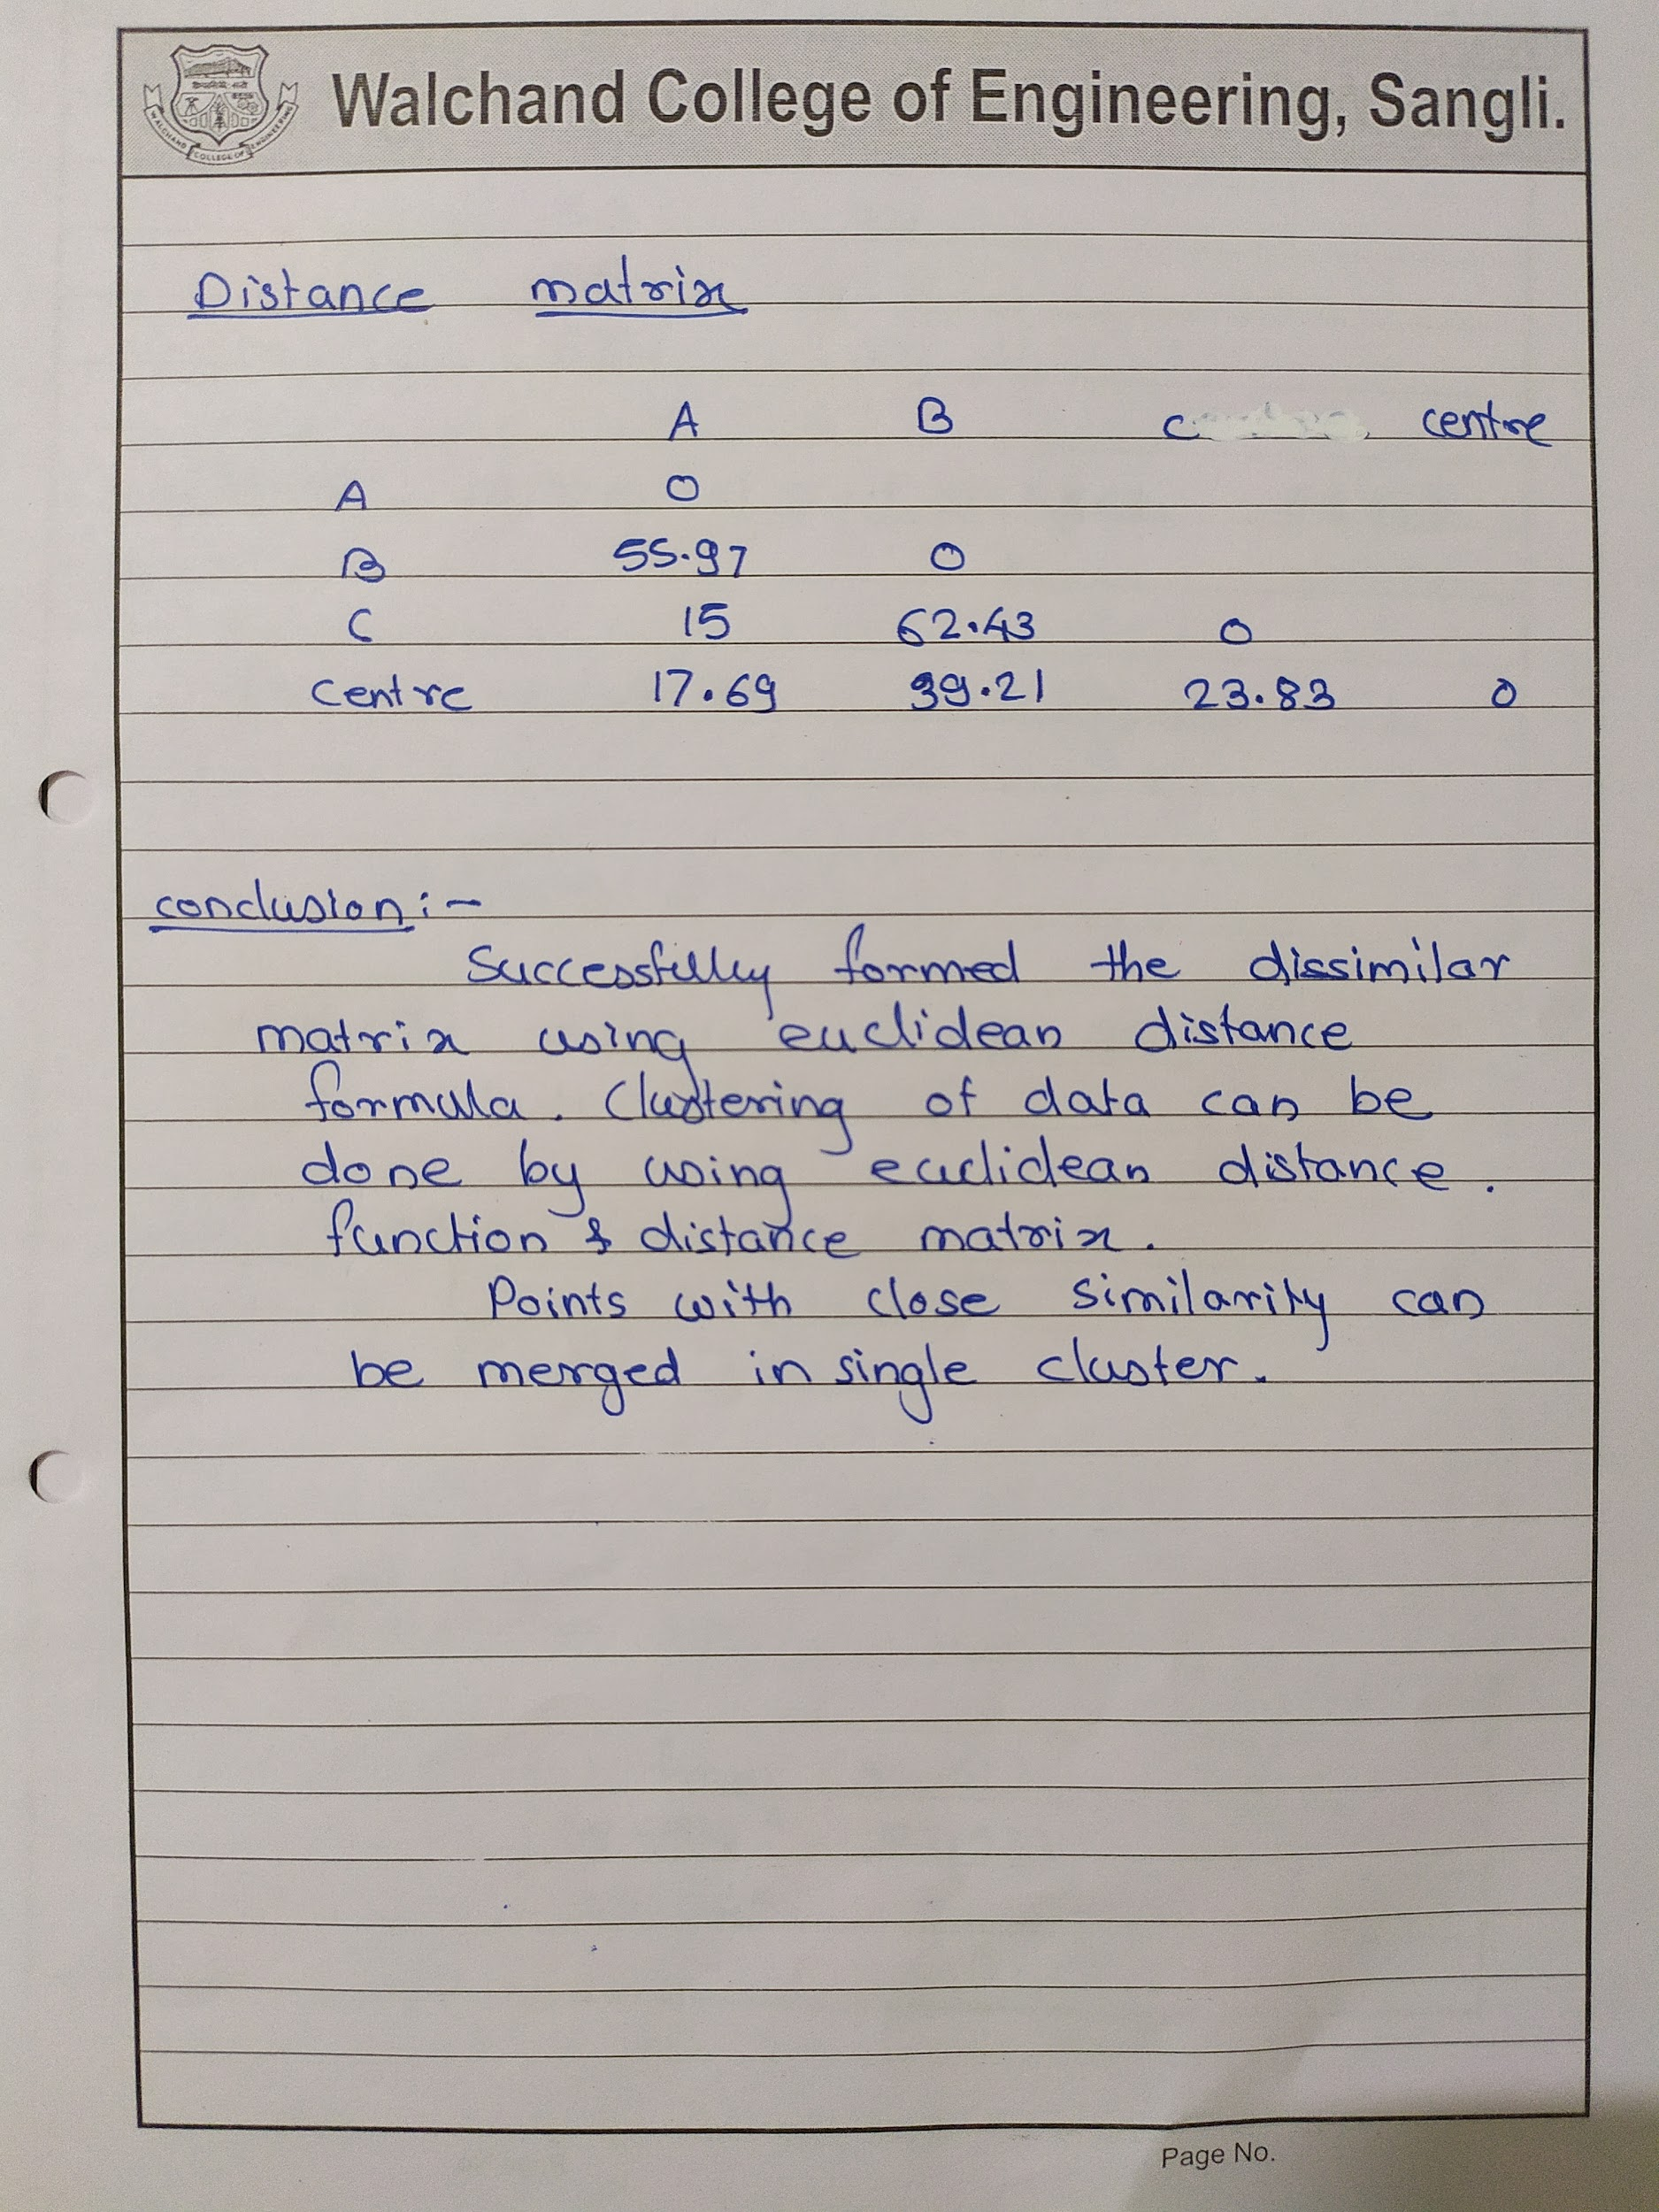 Walchand College of Engineering, Sangli.
WALCHAND COLLEGE OF ENGINEERING
Distance matrix
A B C centre
A 0
B 55.97 0
C 15 62.43 0
Centre 17.69 39.21 23.83 0
conclusion :-
Successfully formed the dissimilar
matrix using euclidean distance
formula. Clustering of data can be
done by using euclidean distance.
function & distance matrix.
Points with close similarity can
be merged in single cluster.
Page No.